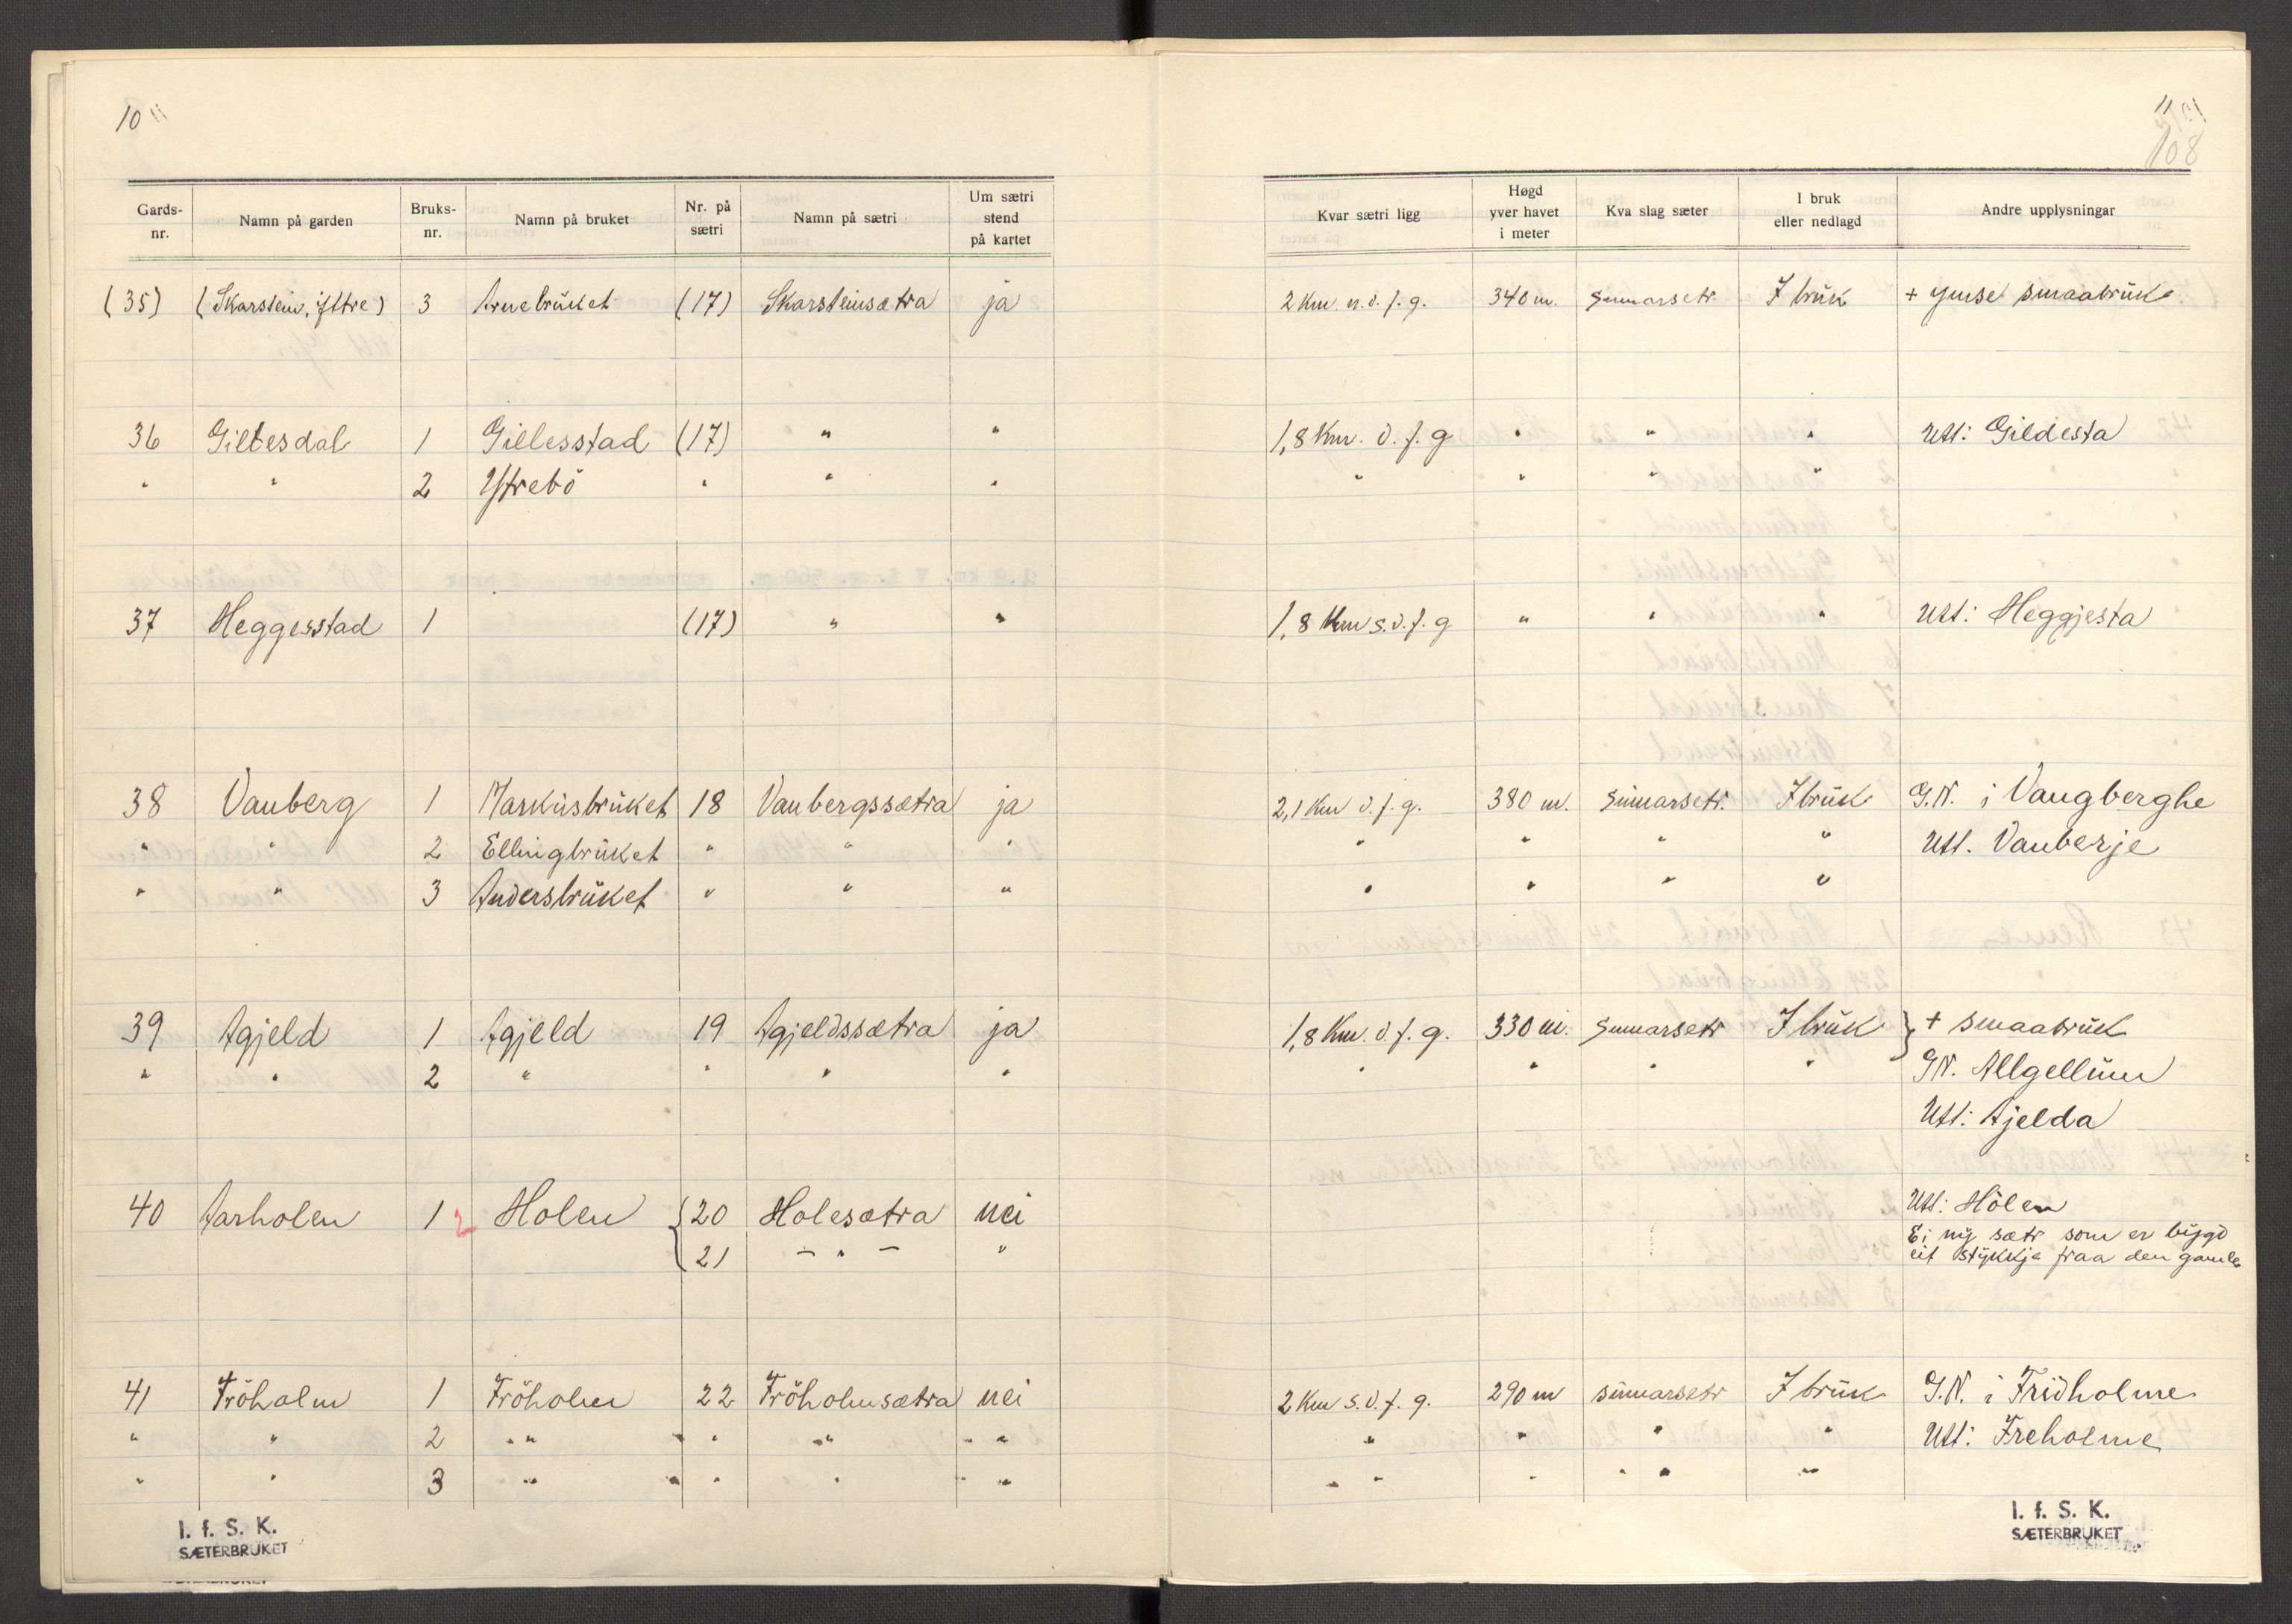 10
11
108
Gards-nr. Namn på garden Bruks-nr. Namn på bruket Nr. på sætri Namn på sætri Um sætri stend på kartet Kvar sætri ligg Høgd yver havet i meter Kva slag sæter I bruk eller nedlagd Andre upplysningar
(35) (Skarstein, yttre) 3 Arnebrŭket (17) Skarsteinsætra ja 2 Km. n.ö.f.g. 340 m. Sumarsetr I brŭk + ymse smaabrŭk
36 Giltesdal 1 Gillesstad (17) " " 1,8 Km. ö.f.g " " " Utt: Gildesta
" " 2 Ytrebö " " " " " "
37 Heggesstad 1 (17) " " 1,8 Km s.ö.f.g " " " Utt: Heggjesta
38 Vanberg 1 Markŭsbrŭket 18 Vanbergssætra ja 2,1 Km ö.f.g. 380 m. Sŭmarsetr. I brŭk G.N. i Vangberghe
" " 2 Ellingbrŭket " " " " " " " Utt. Vanberje
" " 3 Andersbrŭket " " " " " " "
39 Agjeld 1 Agjeld 19 Agjeldssætra ja 1,8 Km. ö.f.g. 330 m. Sumarsetr I brŭk } + smaabrŭk
" " 2 " " " " " " " " GN. Allgellŭm
Utt: Ajelda
40 Aarholen 1 2 Holen { 20 Holesætra nei Utt: Hölen
21 - " - " Ei nŭ sætr som er bŭgd
eit stykkje fraa den gamle
41 Fröholm 1 Fröholm 22 Fröholmsætra nei 2 Km s.ö.f.g. 290 m sŭmarsetr I brŭk G.N. i Fridholme
" " 2 " " " " " " " " " " Utt: Freholme
" " 3 " " " " " " " " " "
I. f. S. K.
SÆTERBRUKET
I. f. S. K.
SÆTERBRUKET